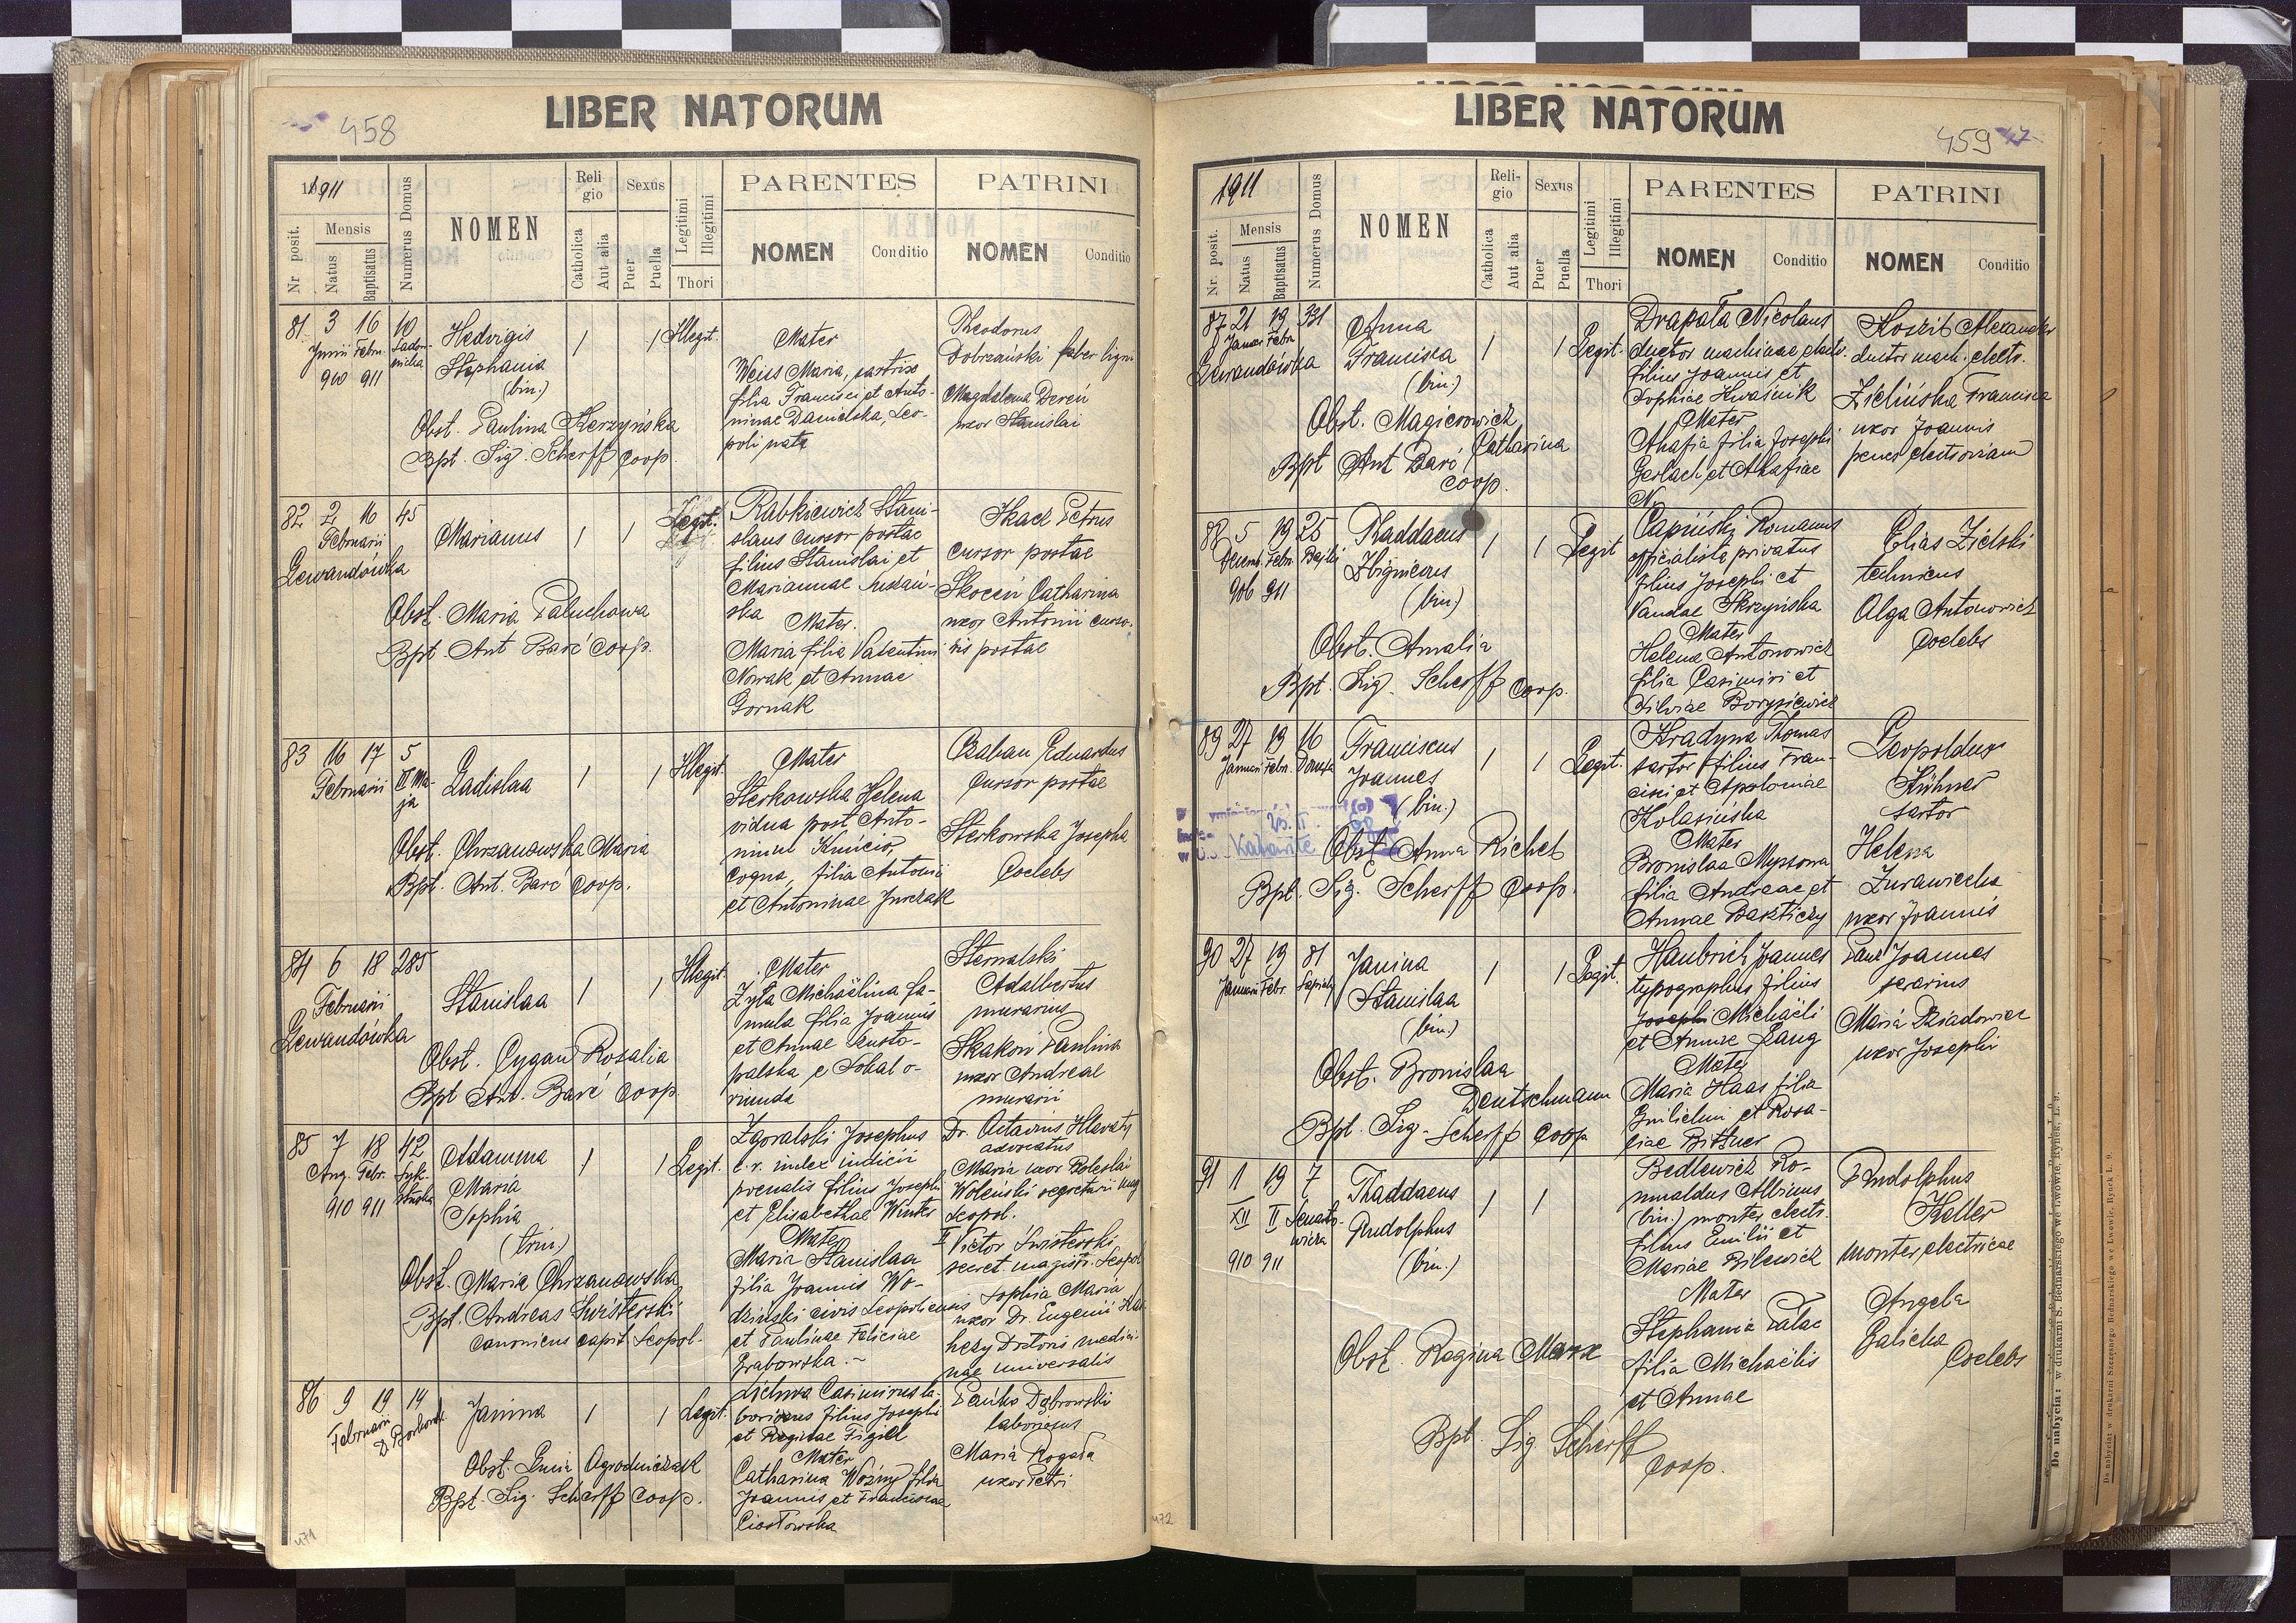 458
LIBER NATORUM
1911
Nr posit.
Mensis
Natus
Baptisatus
Numerus Domus
NOMEN
Religio
Catholica
Aut alia
Sexus
Puer
Puella
Legitimi
Illegitimi
Thori
PARENTES
NOMEN
Conditio
PATRINI
NOMEN
Conditio
81 3 16 10
Junii Febr.
910 911
Hedvigis
Stephania
(bin.)
1 1 Illegit.
Obst. Paulina Kerzyńska
Bpt. Sig. Scherff Coop.
Mater
Weiss Maria, sartrix
filia Francisci et Anto-
ninae Danielska, Leo-
poli nata
Theodorus
Dobrzański faber lign
Magdalena Dereń
uxor Stanislai
82 2 16 45
Februarii
Lewandówka
Marianus
1 1 Legit.
Obst. Maria Paluchowa
Bpt. Ant Barć Coop.
Rabkiewicz Stani-
slaus cursor postae
filius Stanislai et
Mariannae
ska
Mater.
Maria filia Valentini
Nowak et Annae
Gornak
Skacz Petrus
cursor postae
Skoceń Catharina
uxor Antonii curso-
ris postae
83 16 17 5
Februarii
III Ma-
ja
Ladislaa
1 1 Illegit.
Obst. Chrzanowska Maria
Bpt. Ant. Barć Coop.
Mater
Sterkowska Helena
vidua post Anto-
nium
coqua, filia Antonii
et Antoninae Jurczak
Czaban Eduardus
Cursor postae
Sterkowska Josepha
Coelebs
84 6 18 285
Februarii
Lewandówka
Stanislaa
1 1 Illegit.
Obst. Cygan Rosalia
Bpt Ant. Barć Coop.
Mater
Zyła Michaëlina fa-
mula filia Joannis
et Annae Austo-
palska e Sokal o-
riunda
Sternalski
Adalbertus
murarius
Skakoń Paulina
uxor Andreae
murarii
85 7 18 42
Aug. Febr.
910 911
Syk-
stuska
Adamina
Maria
Sophia
(trin.)
1 1 Legit.
Obst. Maria Chrzanowska
Bpt. Andreas Świsterski
canonicus capit. Leopol.
Zgoralski Josephus
c. r. iudex iudicii
poenalis filius Josephi
et Elisabethae Winter
Mater
Maria Stanislaa
filia Joannis Wo-
dziński civis Leopoliensis
et Paulinae Feliciae
Grabowska.
Dr. Octavius Hlavaty
advocatus
Maria uxor Boleslai
Woleński secretarii mag
Leopol.
II Victor Świsterski
secret. magistr. Leopol
Sophia Maria
uxor Dr. Eugenii
Doctoris medici-
nae universalis
86 9 19 14
Februarii
Janina
1 1 Legit.
Obst. Lucia Ogrodniczak
Bpt. Sig. Scherff Coop.
Lichwa Casimirus la-
boriosus filius Josephi
et Reginae Figiel
Mater
Catharina Woźny filia
Joannis et Franciscae
Ciastowska
Panko Dąbrowski
laboriosus
Maria Rogala
uxor Petri
471
459
LIBER NATORUM
1911
Nr posit.
Mensis
Natus
Baptisatus
Numerus Domus
NOMEN
Religio
Catholica
Aut alia
Sexus
Puer
Puella
Legitimi
Illegitimi
Thori
PARENTES
NOMEN
Conditio
PATRINI
NOMEN
Conditio
87 21 19 331
Januar Febr.
Lewandówka
Anna
Francisca
(bin.)
1 1 Legit.
Obst. Magierowicz
Catharina
Bpt Ant Barć
Coop.
Drapała Nicolaus
ductor machinae electr.
filius Joannis et
Sophiae Kwaśnik
Mater
Ahafia filia Josephi
Gerlach et Ahafiae
N.
Alexander
ductor mach. electr.
Zielińska Francisca
uxor Joannis
penes electroviam
88 5 19 25
Decemb. Febr. Bajki
906 911
Thaddaeus
Zbigneus
(bin.)
1 1 Legit
Obst. Amalia
Bpt. Sig. Scherff Coop.
Capiński Romanus
officialista privatus
filius Josephi et
Vandae Skrzyńska
Mater
Helena Antonowicz
filia Casimiri et
Silviae Borysiewicz
Elias Zielski
technicus
Olga Antonowicz
Coelebs
89 27 19 16
Januar Febr.
Franciscus
Joannes
(bin.)
1 1 Legit.
Obst Anna Richel
Bpt. Sig. Scherff Coop.
Hradyna Thomas
sartor filius Fran-
cisci et Apoloniae
Kolasińska
Mater
Bronislaa Myssowa
filia Andreae et
Annae
Leopoldus
Hübner
sartor
Helena
Zurawiecka
uxor Joannis
90 27 19 81
Januarii Febr. Sapiehy
Janina
Stanislaa
(bin.)
1 1 Legit.
Obst. Bronislaa
Deutschmann
Bpt. Sig. Scherff Coop
Haubrich Joannes
typographus filius
Josephi Michaëli
et Annae Lang
Mater
Maria Haas filia
Guilielmi et Rosa-
liae Bittner
Panz Joannes
serarius
Maria Dziadowicz
uxor Josephi
91 1 19 7
XII II
910 911
Senato-
wicza
Thaddaeus
Rudolphus
(bin.)
1 1
Obst. Regina Marx
Bpt. Sig Scherff
Coop.
Bedlewicz Ro-
mualdus Albinus
(bin.) monter electr.
filius Emilii et
Mariae Bilewicz
Mater
Stephania Palac
filia Michaëlis
et Annae
Rudolphus
Keller
monter electricae
Angela
Galicka
Coelebs
472
Do nabycia: w drukarni S. Bednarskiego we Lwowie, Rynek, L. 9.
Do nabycia: w drukarni Szczęsnego Bednarskiego we Lwowie, Rynek L. 9.